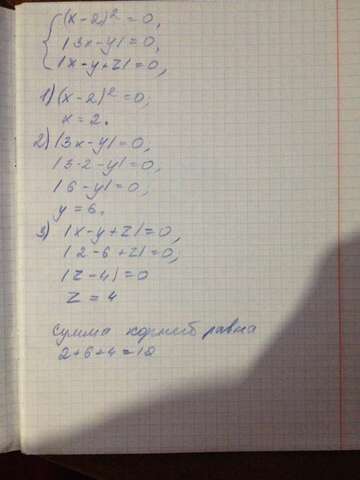 { (x-2)² = 0,
|3x-y| = 0,
|x-y+z| = 0,
1) (x-2)² = 0,
x = 2.
2) |3x-y| = 0,
|3·2-y| = 0,
|6-y| = 0,
y = 6.
3) |x-y+z| = 0,
|2-6+z| = 0,
|z-4| = 0
z = 4
Сумма корней равна
2+6+4=12